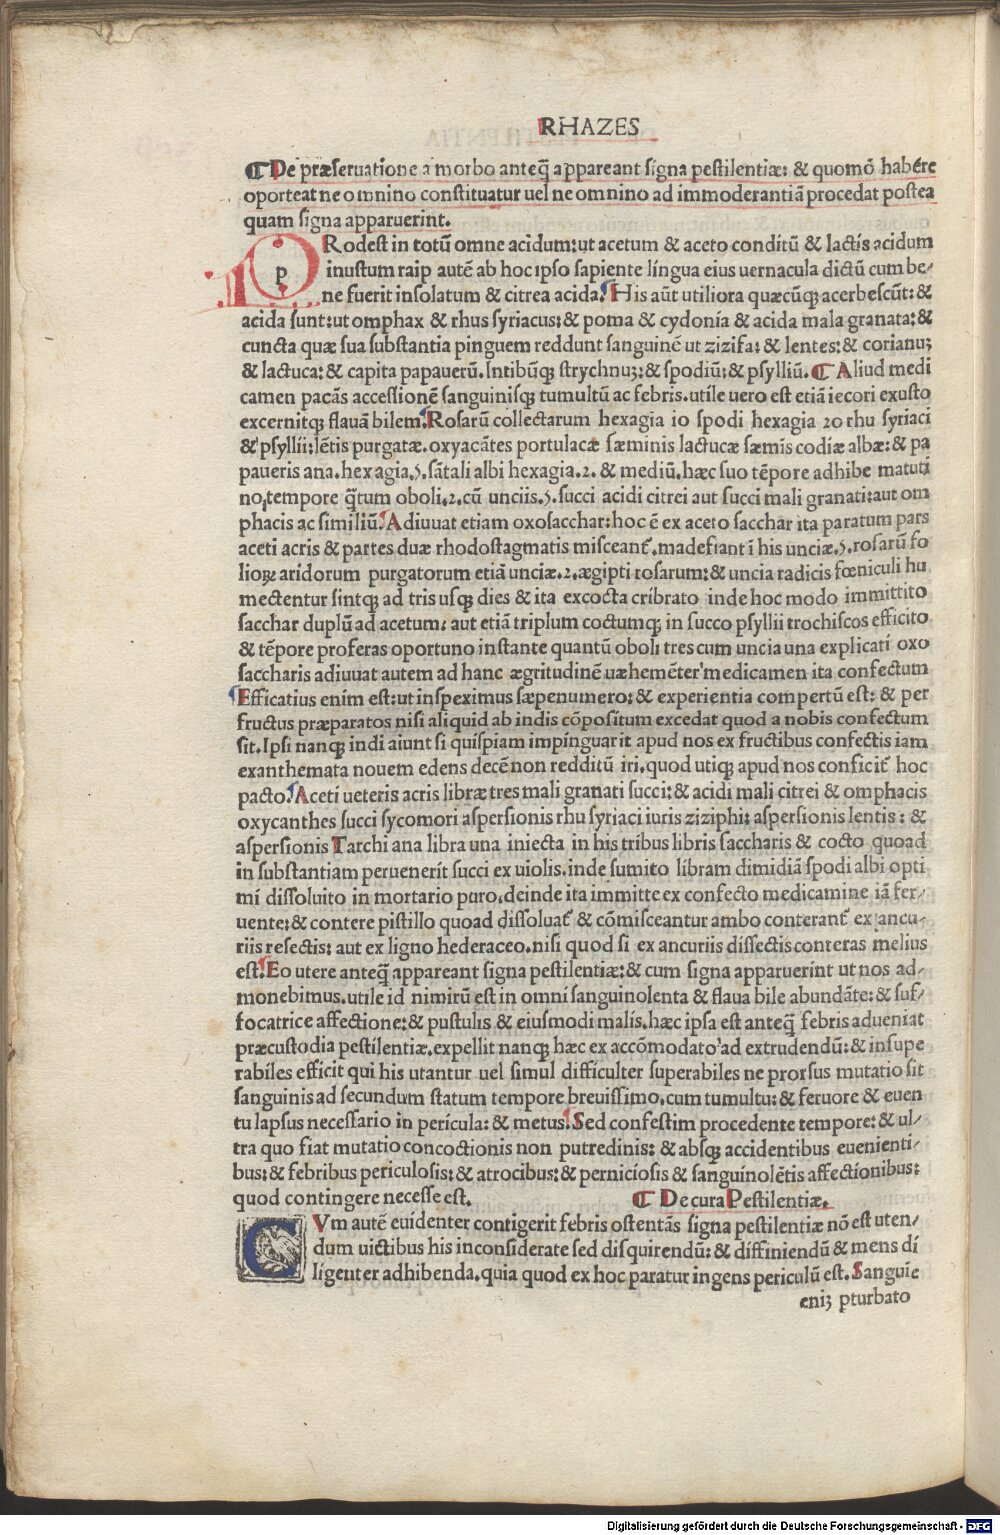 RHAZES
¶ De præseruatione a morbo anteq̃ appareant signa pestilentiæ: & quomõ habére
oporteat ne omnino constituatur uel ne omnino ad immoderantiã procedat postea
quam signa apparuerint.
pRodest in totũ omne acidum: ut acetum & aceto conditũ & lactis acidum
inustum raip autẽ ab hoc ipso sapiente língua eius uernacula dictũ cum be⸗
ne fuerit insolatum & citrea acida. His aũt utiliora quæcũq; acerbescũt: &
acida sunt: ut omphax & rhus syriacus: & poma & cydonía & acida mala granata: &
cuncta quæ sua substantia pinguem reddunt sanguinẽ ut zizifa: & lentes: & corianuȝ
& lactuca: & capita papauerũ. Intibũq; strychnuȝ: & spodiũ: & psylliũ. ¶ Aliud medi
camen pacãs accessionẽ sanguinisq; tumultũ ac febris. utile uero est etiã iecori exusto
excernitq; flauã bilem. Rosarũ collectarum hexagia 10 spodi hexagia 20 rhu syriaci
& psyllii: lẽtis purgatæ. oxyacãtes portulacæ sæminis lactucæ sæmis codiæ albæ: & pa
paueris ana. hexagia. 5. sãtali albi hexagia. 2. & mediũ. hæc suo tẽpore adhibe matuti
no, tempore q̃tum oboli. 2. cũ unciis. 5. succi acidi citrei aut succi mali granati: aut om
phacis ac similiũ. Adiuuat etiam oxosacchar: hoc ẽ ex aceto sacchar ita paratum pars
aceti acris & partes duæ rhodostagmatis misceant᷑. madefiant ĩ his unciæ. 5. rosarũ fo
lioꝝ aridorum purgatorum etiã unciæ. 2. ægipti rosarum: & uncia radicis fœniculi hu
mectentur sintq; ad tris usq; dies & ita excocta cribrato inde hoc modo immittito
sacchar duplũ ad acetum: aut etiã triplum coctumq; in succo psyllii trochiscos efficito
& tẽpore proferas oportuno instante quantũ oboli tres cum uncia una explicati oxo
saccharis adiuuat autem ad hanc ægritudinẽ uæhemẽter medicamen ita confectum
Efficatius enim est: ut inspeximus sæpenumero: & experientia compertũ est: & per
fructus præparatos nisi aliquid ab indis cõpositum excedat quod a nobis confectum
sit. Ipsi nanq; indi aiunt si quispiam impinguarit apud nos ex fructibus confectis iam
exanthemata nouem edens decẽ non redditũ iri. quod utiq; apud nos conficit᷑ hoc
pacto. Aceti ueteris acris libræ tres mali granati succi: & acidi mali citrei & omphacis
oxycanthes succi sycomori aspersionis rhu syriaci iuris ziziphi: aspersionis lentis: &
aspersionis Tarchi ana libra una iniecta in his tribus libris saccharis & cocto quoad
in substantiam peruenerit succi ex uiolis. inde sumito libram dimidiã spodi albi opti
mi dissoluito in mortario puro. deinde ita immitte ex confecto medicamine iã fer⸗
uente: & contere pistillo quoad dissoluat᷑ & cõmisceantur ambo conterant᷑ ex ancu⸗
riis resectis: aut ex ligno hederaceo. nisi quod si ex ancuriis dissectis conteras melius
est. Eo utere anteq̃ appareant signa pestilentiæ: & cum signa apparuerint ut nos ad⸗
monebimus. utile id nimirũ est in omni sanguinolenta & flaua bile abundãte: & suf⸗
focatrice affectione: & pustulis & eiusmodi malis. hæc ipsa est anteq̃ febris adueniat
præcustodia pestilentiæ. expellit nanq; hæc ex accõmodato ad extrudendũ: & insupe
rabiles efficit qui his utantur uel simul difficulter superabiles ne prorsus mutatio sit
sanguinis ad secundum statum tempore breuissimo. cum tumultu: & feruore & euen
tu lapsus necessario in pericula: & metus. Sed confestim procedente tempore: & ul⸗
tra quo fiat mutatio concoctionis non putredinis: & absq; accidentibus euenienti⸗
bus: & febribus periculosis: & atrocibus: & perniciosis & sanguinolẽtis affectionibus:
quod contingere necesse est. ¶ De cura Pestilentiæ.
CVm autẽ euidenter contigerit febris ostentãs signa pestilentiæ nõ est uten⸗
dum uictibus his inconsiderate sed disquirendũ: & diffiniendũ & mens di
ligenter adhibenda. quia quod ex hoc paratur ingens periculũ est. Sanguĩe
eniȝ pturbato
Digitalisierung gefördert durch die Deutsche Forschungsgemeinschaft - DFG